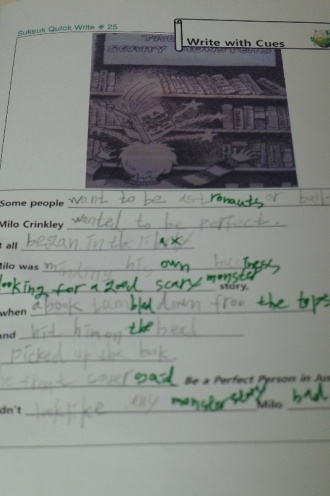 Suksuk Quick Write # 25
Write with Cues
SCARY MONSTERS
Some people want to be astronauts or ball
Milo Crinkley wanted to be perfect.
t all began in the
Milo was minding his own business
looking for a good scary monster story.
when a book tumbled down from the tops
and hit him on the head
picked up the book.
front cover said Be a Perfect Person in Jus
dn't look like any monster story Milo had